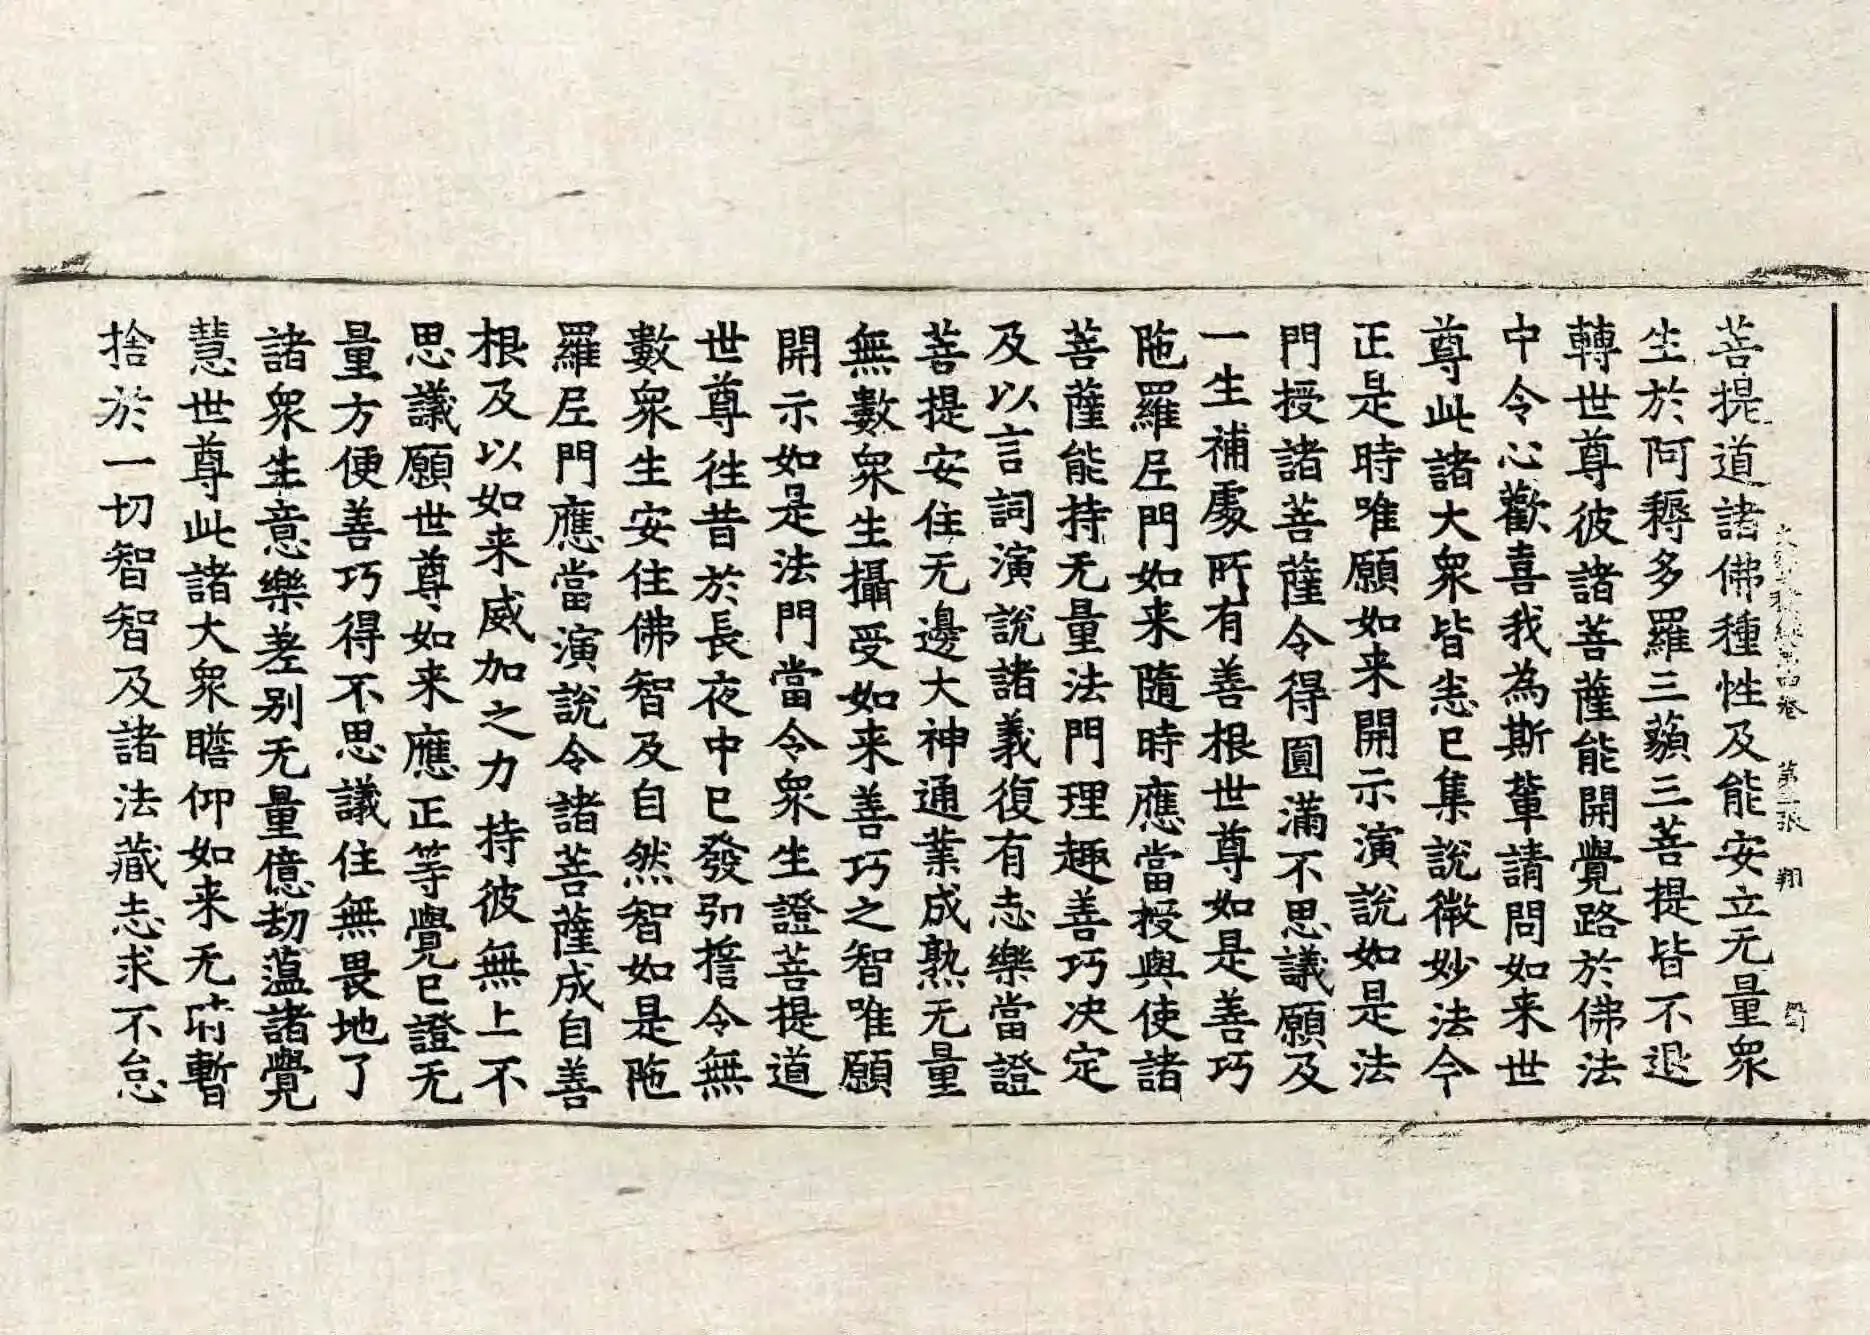 大寶積經第四卷 第二張 翔
菩提道諸佛種性及能安立无量衆
生於阿耨多羅三藐三菩提皆不退
轉世尊彼諸菩薩能開覺路於佛法
中令心歡喜我為斯軰請問如来世
尊此諸大衆皆悉已集說微妙法今
正是時唯願如来開示演說如是法
門授諸菩薩令得圓滿不思議願及
一生補處所有善根世尊如是善巧
陁羅尼門如来隨時應當授與使諸
菩薩能持无量法門理趣善巧决定
及以言詞演說諸義復有志樂當證
菩提安住无邊大神通業成熟无量
無數衆生攝受如来善巧之智唯願
開示如是法門當令衆生證菩提道
世尊往昔於長夜中已發弘誓令無
數衆生安住佛智及自然智如是陁
羅尼門應當演說令諸菩薩成自善
根及以如来威加之力持彼無上不
思議願世尊如来應正等覺已證无
量方便善巧得不思議住無畏地了
諸衆生意樂差别无量億劫薀諸覺
慧世尊此諸大衆瞻仰如来无時暫
捨於一切智智及諸法藏志求不怠